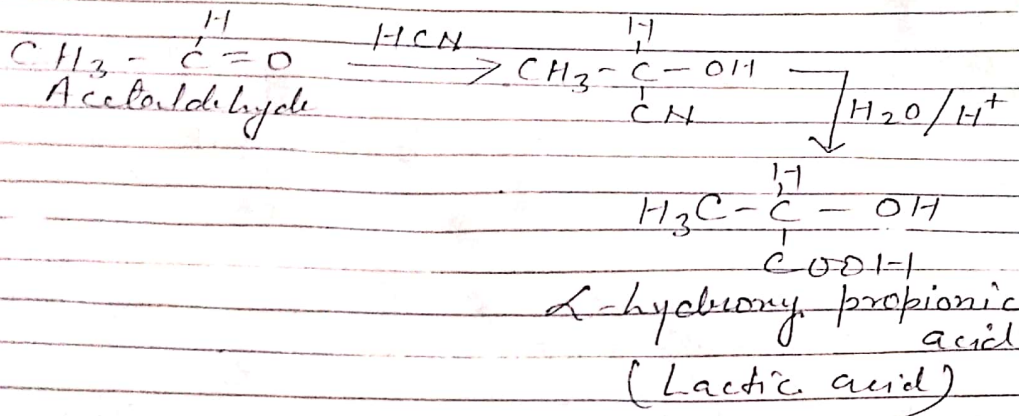 H H
CH3 - C = O HCN CH3 - C - OH
Acetaldehyde CN H2O/H+
H
H3C - C - OH
COOH
α-hydroxy propionic
acid
(Lactic acid)